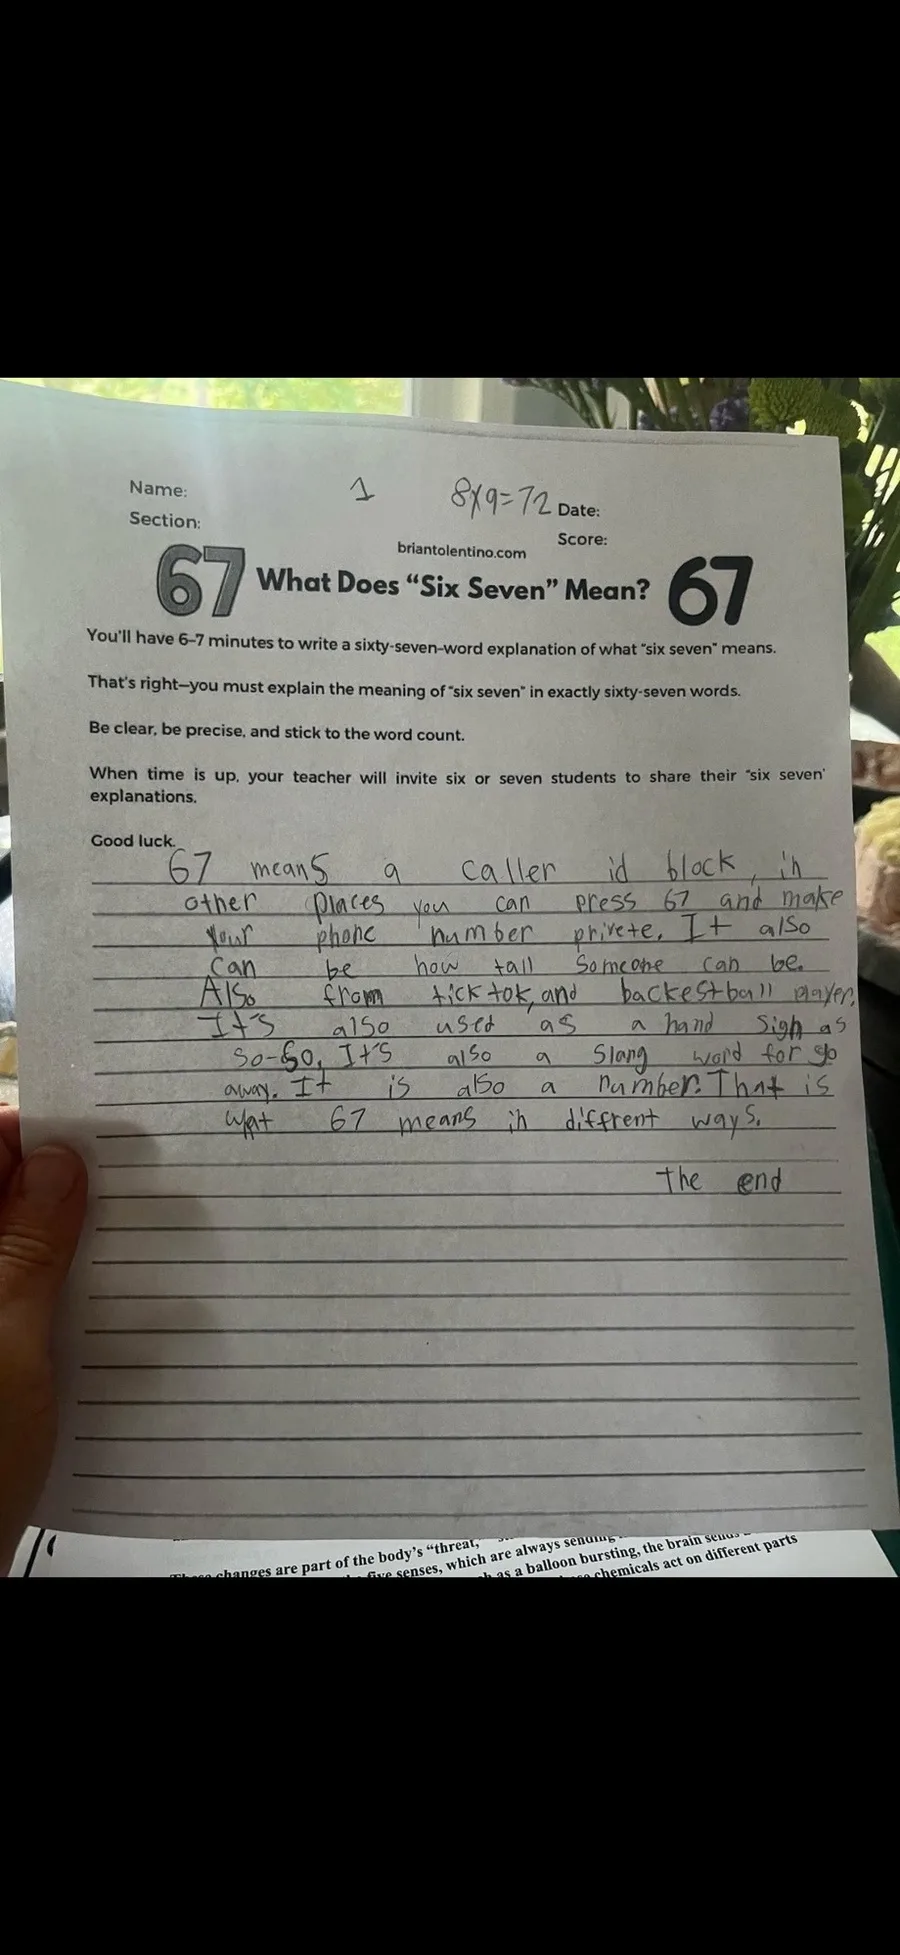 Name:
1
8x9=72
Date:
Section:
Score:
briantolentino.com
67 What Does “Six Seven” Mean? 67
You'll have 6–7 minutes to write a sixty-seven-word explanation of what "six seven" means.
That's right—you must explain the meaning of "six seven" in exactly sixty-seven words.
Be clear, be precise, and stick to the word count.
When time is up, your teacher will invite six or seven students to share their "six seven"
explanations.
Good luck.
67 means a caller id block, in
other places you can press 67 and make
your phone number privete. It also
can be how tall someone can be.
Also from tick tok, and backestball player.
It's also used as a hand sign as
so-so. It's also a slang word for go
away. It is also a number. That is
what 67 means in diffrent ways.
The end
changes are part of the body's “threat,”
five senses, which are always sending
as a balloon bursting, the brain sends
chemicals act on different parts